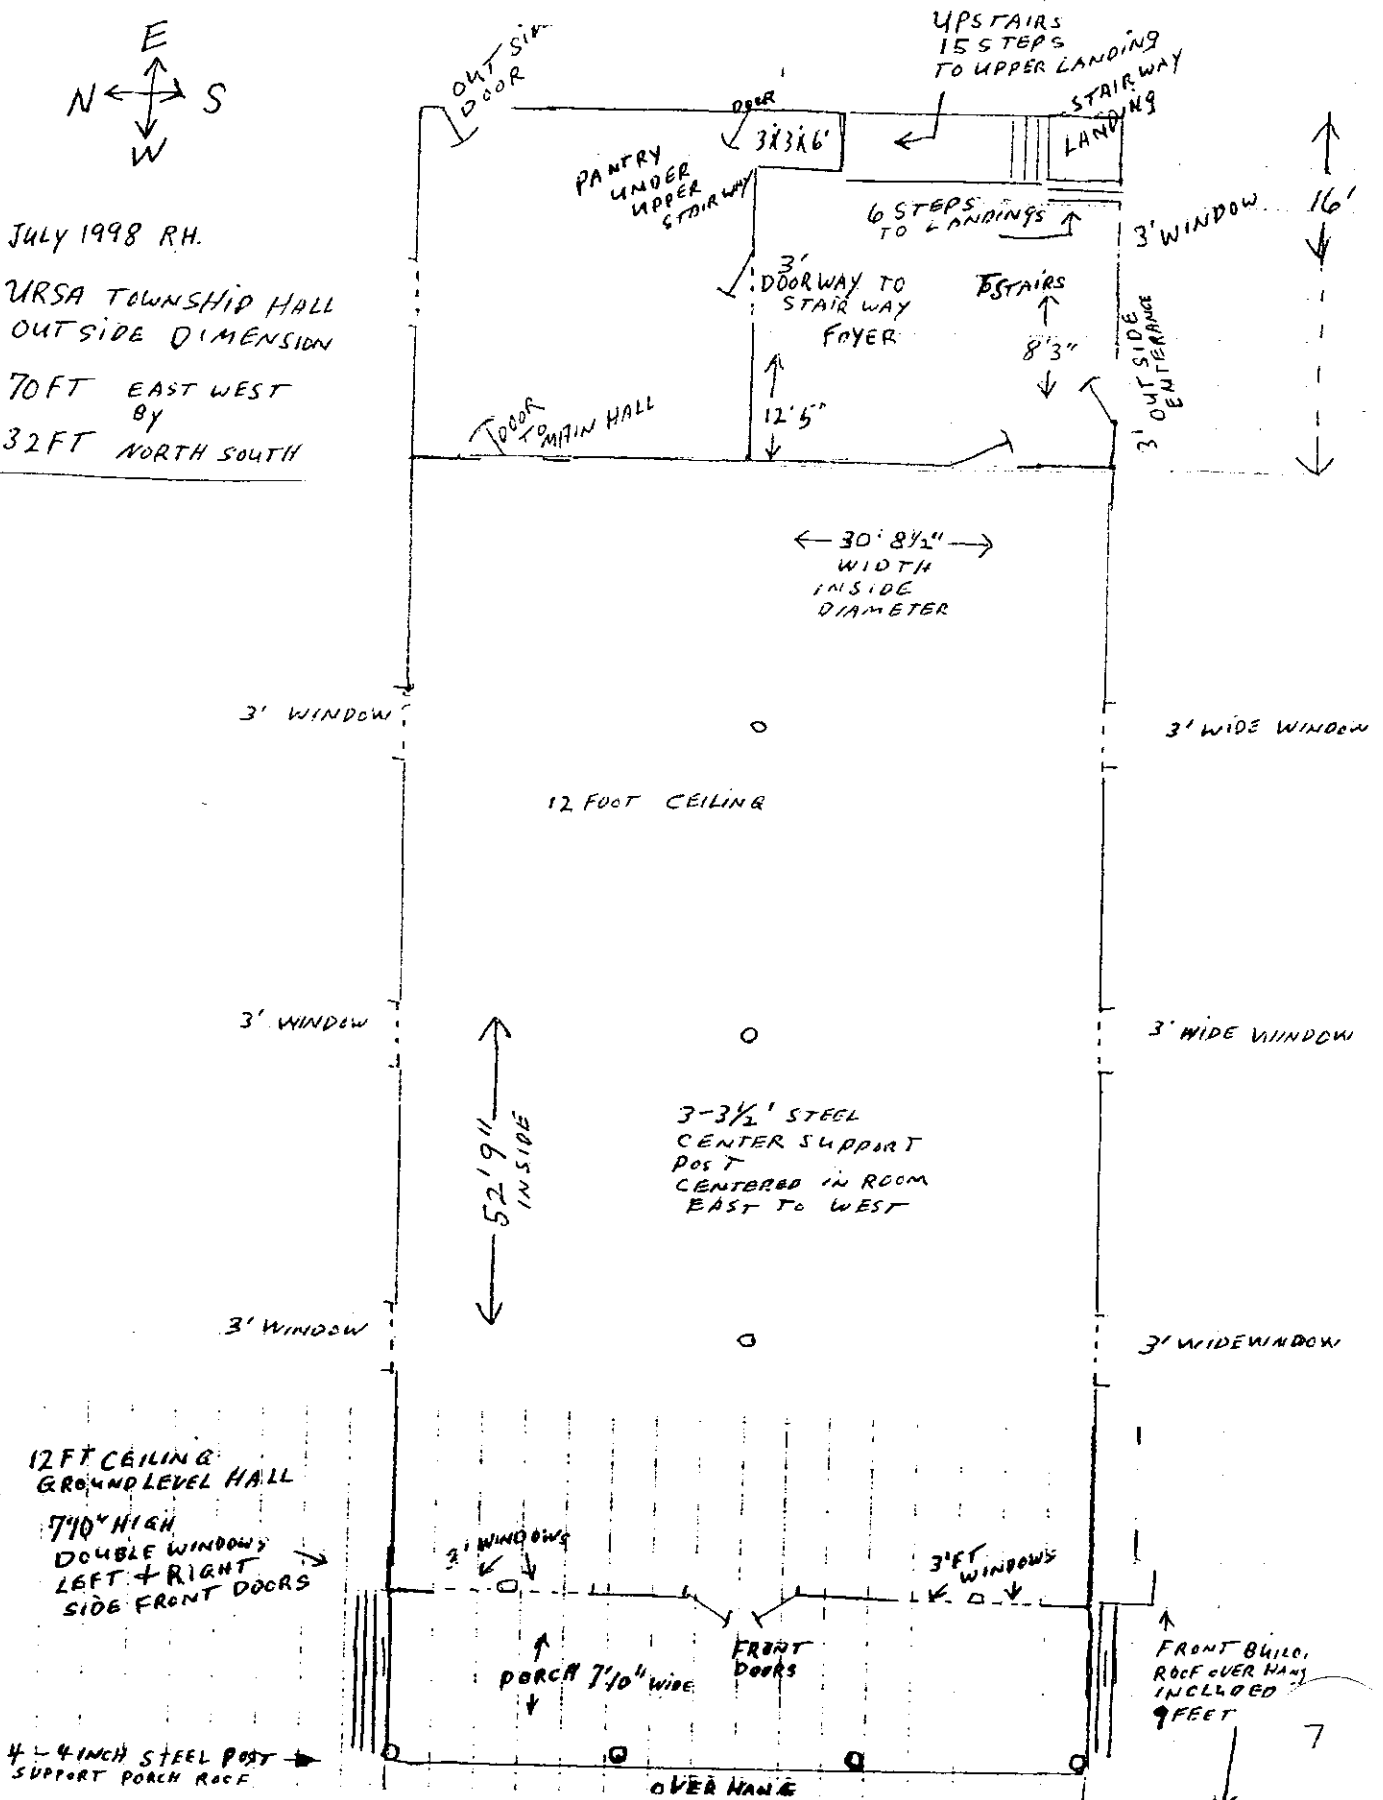 E
N S
W
JULY 1998 RH.
URSA TOWNSHIP HALL
OUTSIDE DIMENSION
70FT EAST WEST
BY
32FT NORTH SOUTH
OUT
DOOR
DOOR
3X3X6'
PANTRY
UNDER
UPPER
STAIRWAY
UPSTAIRS
15 STEPS
TO UPPER LANDING
STAIRWAY
LANDING
6 STEPS
TO LANDINGS
3' WINDOW
16'
3'
DOORWAY TO
STAIR WAY
FOYER
8'3"
3' OUTSIDE
ENTERANCE
DOOR
TO MAIN HALL
12'5"
30' 8½"
WIDTH
INSIDE
DIAMETER
3' WINDOW
3' WIDE WINDOW
12 FOOT CEILING
3' WINDOW
3' WIDE WINDOW
52'9"
INSIDE
3-3½' STEEL
CENTER SUPPORT
POST
CENTERED IN ROOM
EAST TO WEST
3' WINDOW
3' WIDE WINDOW
12FT CEILING
GROUND LEVEL HALL
7'10" HIGH
DOUBLE WINDOWS
LEFT + RIGHT
SIDE FRONT DOORS
3' WINDOWS
3'FT
WINDOWS
PORCH 7'10" WIDE
FRONT
DOORS
FRONT BUILD.
ROOF OVER HANG
INCLUDED
9 FEET
7
4-4 INCH STEEL POST
SUPPORT PORCH ROOF
OVER HANG